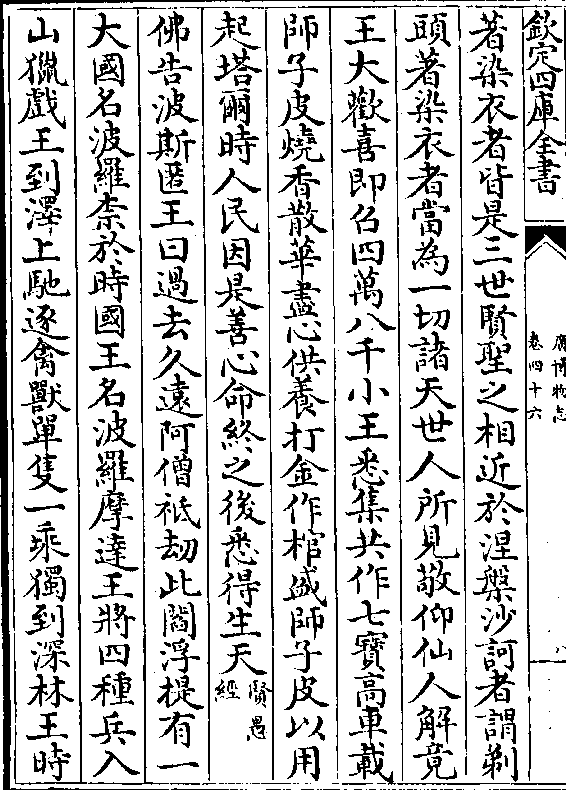 欽定四庫全書
廣博物志
卷四十六
八
著染衣者皆是三世賢聖之相近於涅盤沙訶者謂剃
頭著染衣者當為一切諸天世人所見敬仰仙人解竟
王大歡喜即召四萬八千小王悉集共作七寶高車載
師子皮燒香散華盡心供養打金作棺盛師子皮以用
起塔爾時人民因是善心命終之後悉得生天賢愚經
佛告波斯匿王曰過去久遠阿僧祇劫此閻浮提有一
大國名波羅柰於時國王名波羅摩達王將四種兵入
山獵戲王到澤上馳逐禽獸單隻一乘獨到深林王時